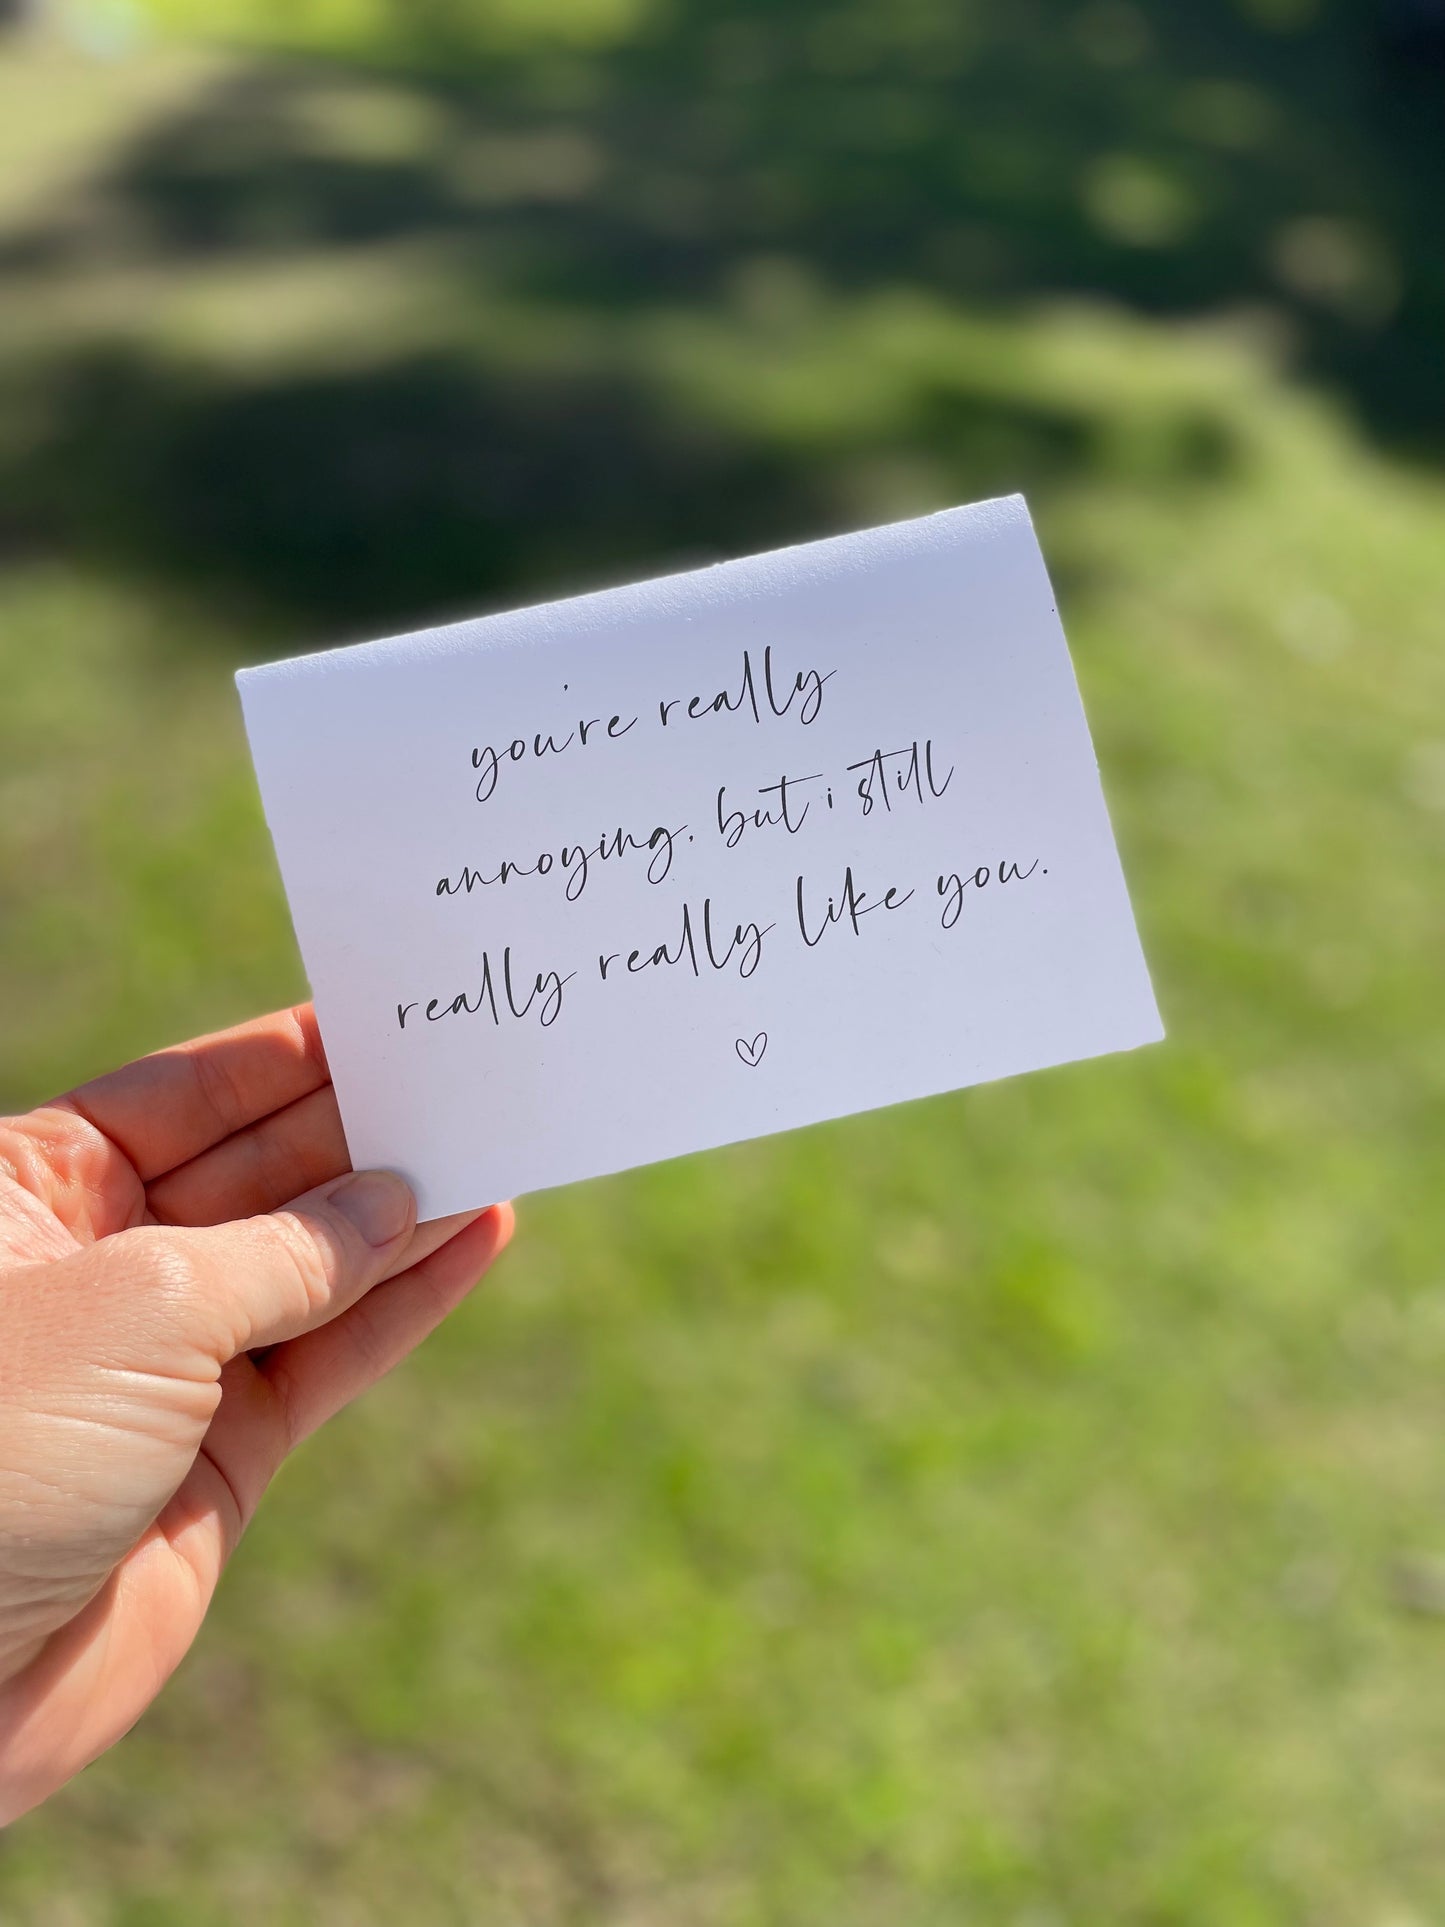 you're really
annoying, but i still
really really like you.